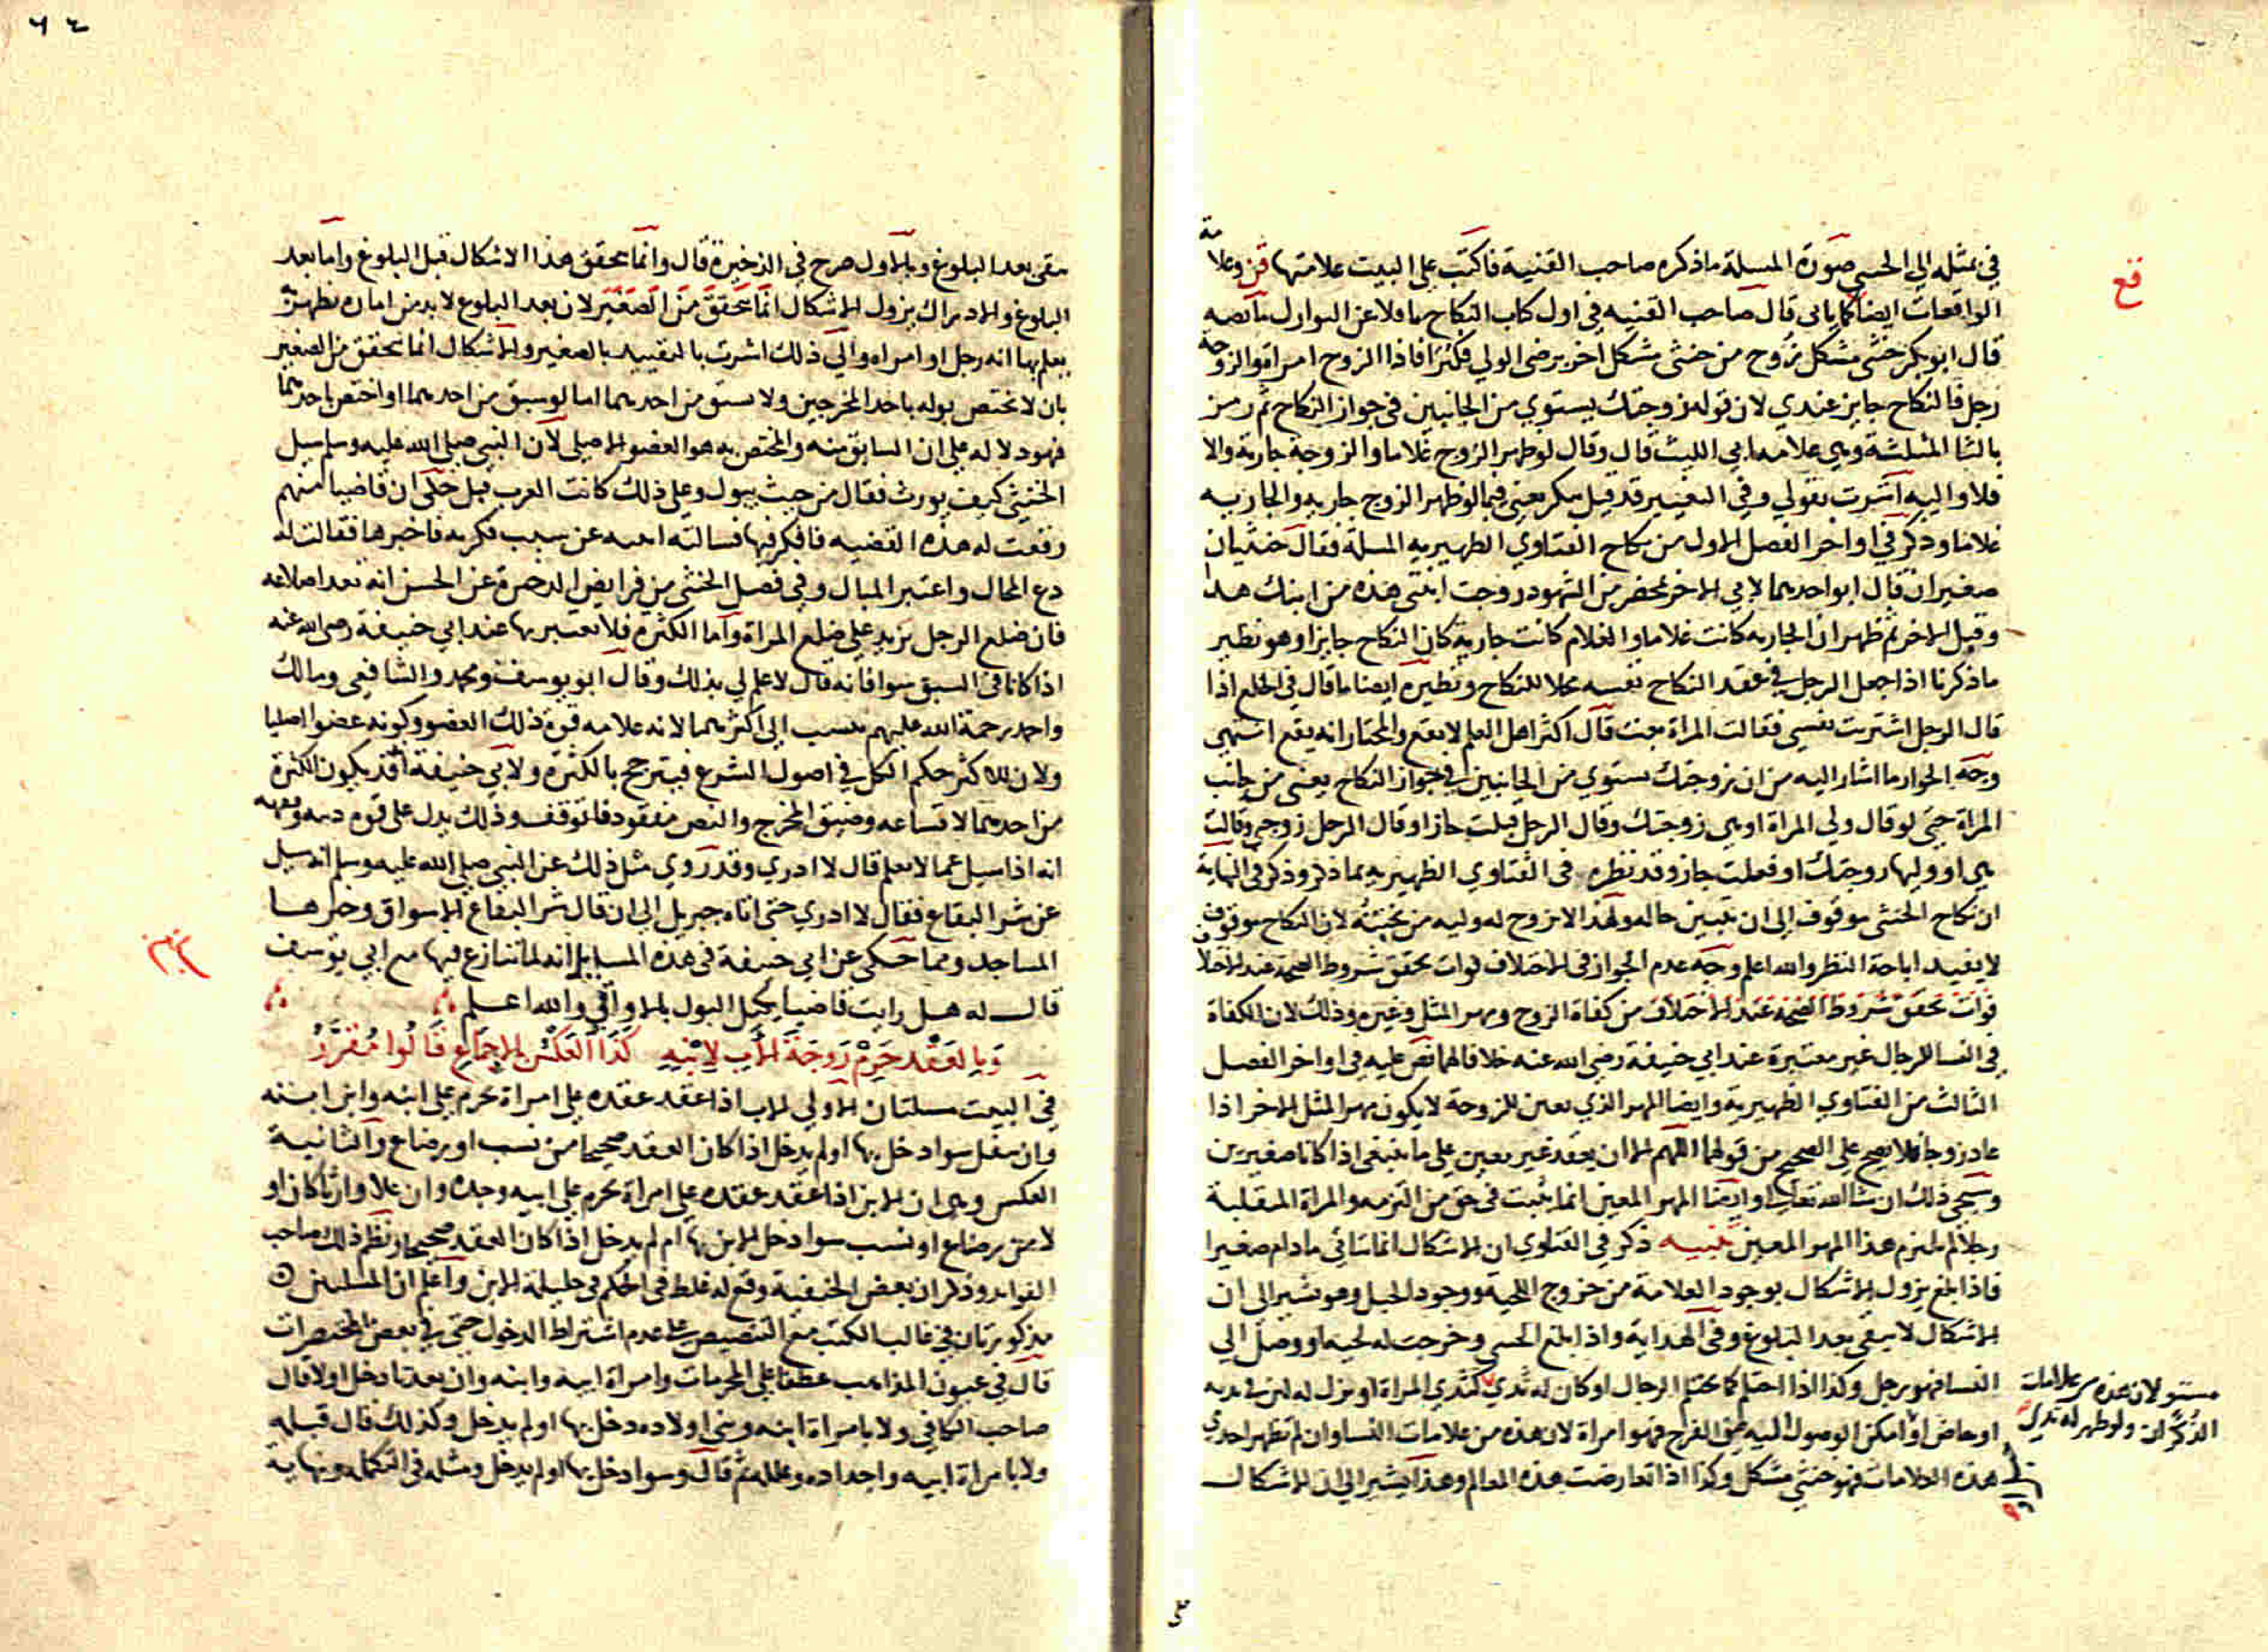 في مثله الى الخنثى صورة المسلة ما ذكره صاحب القنية فاكتب على البيت علامتها قن وعلامة
قع
الواقعات ايضا كما ياتي قال صاحب القنيه في اول كتاب النكاح ناقلا عن النوازل ما نصه
قال ابو بكر خنثى مشكل تزوج من خنثى مشكل اخر برضى الولي فكبرا فاذا الزوج امراة والزوجة
رجل فالنكاح جايز عندي لان قوله زوجتك يستوي من الجانبين في جواز النكاح ثم رمز
بالثا المثلثة وهي علامه ابي الليث قال وقال لو ظهر الزوج غلاما والزوجة جارية والا
فلا واليه اشرت بقولي وفي التغيير قد قيل ينكر يعني فيما لو ظهر الزوج جاريه والجاريه
غلاما وذكر في اواخر الفصل الاول من نكاح الفتاوي الظهيريه المسلة فقال خنثيان
صغيران قال ابو احدهما لابي الاخر بمحضر من الشهود زوجت ابنتي هذه من ابنك هذا
وقبل الاخر ثم ظهر ان الجاريه كانت غلاما والغلام كانت جارية كان النكاح جايزا وهو نظير
ما ذكرنا اذا جعل الرجل في عقد النكاح نفسه محلا للنكاح ونظيره ايضا ما قال في الخلع اذا
قال الرجل اشتريت نفسي فقالت المراة بعت قال اكثر اهل العلم لا يقع والمختار انه يقع انتهى
وجه الجواز ما اشار اليه من ان زوجتك يستوي من الجانبين في جواز النكاح يعني من جانب
المراة حتى لو قال ولي المراة او هي زوجتك وقال الرجل قبلت جاز او قال الرجل زوجيني وقالت
هي او وليها زوجتك او فعلت جاز وقد نظره في الفتاوي الظهيريه بما ذكر وذكر في النهاية
ان نكاح الخنثى موقوف الى ان يتبين حاله ولهذا لا يزوج له وليه من تختنه لان النكاح موقوف
لا يفيد اباحة النظر والله اعلم وجه عدم الجواز في الاختلاف فوات تحقق شروط الصحة عند الاختلاف
فوات تحقق شروط الصحة عند الاختلاف من كفاة الزوج ومهر المثل وغيره وذلك لان الكفاة
في النسا للرجال غير معتبرة عند ابي حنيفة رضي الله عنه خلافا لهما نص عليه في اواخر الفصل
الثالث من الفتاوي الظهيرية وايضا المهر الذي يعين للزوجة لا يكون مهر المثل للاخر اذا
عاد زوجا فلا يصح على الصحيح من قولهما اللهم الا ان يعقد غير معين على ما ينبغي اذا كانا صغيرين
وسيجي ذلك ان شا الله تعالى وايضا المهر المعين انما يثبت في حق من التزمه والمراة المنقلبة
رجلا لم يلتزم هذا المهر المعين تنبيه ذكر في الفتاوي ان الاشكال انما يتاتى ما دام صغيرا
فاذا بلغ يزول الاشكال بوجود العلامة من خروج اللحية ووجود الحبل وهو يشير الى ان
الاشكال لا يبقى بعد البلوغ وفي الهداية واذا بلغ الخنثى وخرجت له لحية او وصل الى
النسا فهو رجل وكذا اذا احتلم كما يحتلم الرجال او كان له ثدي كثدي المراة او نزل له لبن في ثديه
مستو لان هذه من علامات
الذكران ولو ظهر له ثدي
او حاض او امكن الوصول اليه من الفرج فهو امراة لان هذه من علامات النسا وان لم تظهر احدى
هذه العلامات فهو خنثى مشكل وكذا اذا تعارضت هذه المعالم وهذا يشير الى ان الاشكال
٦٤
يبقى بعد البلوغ وبالاول صرح في الذخيرة قال وانما يتحقق هذا الاشكال قبل البلوغ واما بعد
البلوغ والادراك يزول الاشكال انما يتحقق من الصغير لان بعد البلوغ لا بد من امارة تظهر
يعلم بها انه رجل او امراه والى ذلك اشرت بالتقييد بالصغير والاشكال انما يتحقق من الصغير
بان لا يختص بوله باحد المخرجين ولا يسبق من احدهما اما لو سبق من احدهما او اختص باحدهما
فهو دلاله على ان السابق منه والمختص به هو العضو الاصلي لان النبي صلى الله عليه وسلم سيل
الخنثى كيف يورث فقال من حيث يبول وعلى ذلك كانت العرب قبل حكى ان قاضيا منهم
رفعت له هذه القضيه فافكر فيها فسالته امته عن سبب فكره فاخبرها فقالت له
دع المحال واعتبر المبال وفي فصل الخنثى من فرايض الذخيرة عن الحسن انه تعد اضلاعه
فان ضلع الرجل يزيد على ضلع المراة واما الكثرة فلا يعتبر بها عند ابي حنيفة رضي الله عنه
اذا كانا في السبق سوا فانه قال لا علم لي بذلك وقال ابو يوسف ومحمد والشافعي ومالك
واحمد رحمة الله عليهم ينسب الى اكثرهما لانه علامه قوة ذلك العضو وكونه عضوا اصليا
ولان للاكثر حكم الكل في اصول الشرع فيترجح بالكثرة ولابي حنيفة انه قد يكون الكثرة
من احدهما لاتساعه وضيق المخرج والنص مفقود فالتوقف وذلك يدل على قوة دينه وفقهه
انه اذا سيل عما لا يعلم قال لا ادري وقد روي مثل ذلك عن النبي صلى الله عليه وسلم انه سيل
عن شر البقاع فقال لا ادري حتى اتاه جبريل الى ان قال شر البقاع الاسواق وخيرها
المساجد ومما حكى عن ابي حنيفة في هذه المسايل انه لما تنازع فيها مع ابي يوسف
قال له هل رايت قاضيا يكيل البول بالاواقي والله اعلم
وبالعقد حرم زوجة الاب لابنه كذا العكس بالاجماع قالوا مقرر
في البيت مسلتان الاولى الاب اذا عقد عقده على امراة تحرم على ابنه وابن ابنه
وان سفل سوا دخل بها او لم يدخل اذا كان العقد صحيحا من نسب او رضاع والثانية
العكس وهي ان الابن اذا عقد عقده على امراة تحرم على ابيه وجده وان علا وارثا كان او
لا من رضاع او نسب سوا دخل الابن بها ام لم يدخل اذا كان العقد صحيحا ونظم ذلك صاحب
الفوايد وذكر ان بعض الحنفية وقع له غلط في الحكم في حليلة الابن واعلم ان المسلتين
مذكورتان في غالب الكتب مع التنصيص على عدم اشتراط الدخول حتى في بعض المختصرات
قال في عيون المذاهب عطفا على المحرمات وامراة ابيه وابنه وان بعدتا دخل او لا قال
صاحب الكافي ولا بامراة ابنه وبني اولاده دخل بها او لم يدخل وكذلك قال قبله
ولا بامراة ابيه واجداده وعلله ثم قال وسوا دخل بها او لم يدخل ومثله في التكمله ونهاية